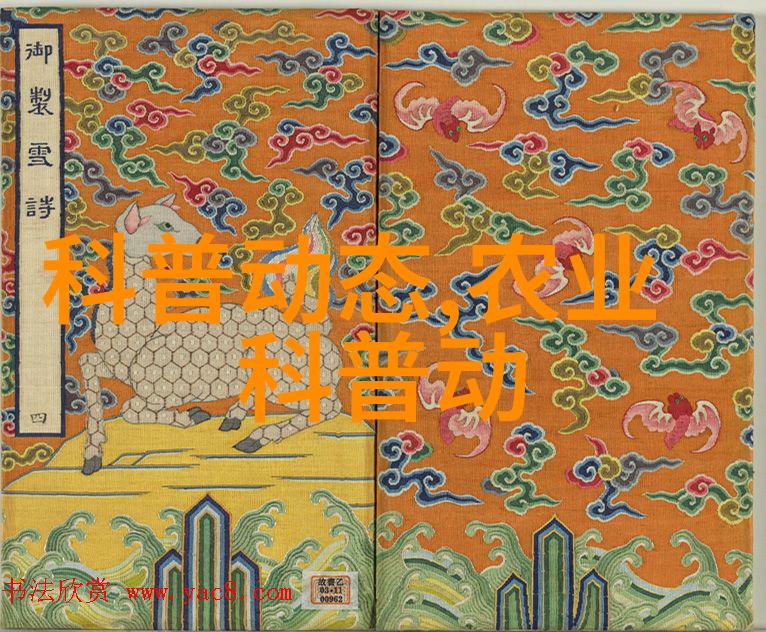 御製雪詩
四
科普动态,农业
科普动
书法欣赏 www.yac8.com
故書乙
03•11
00962